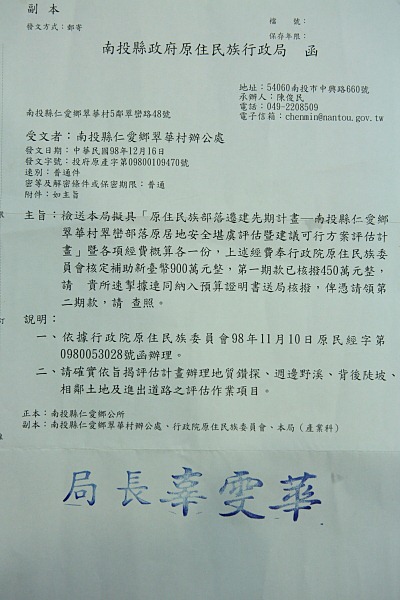 副 本
發文方式：郵寄
檔 號：
保存年限：
南投縣政府原住民族行政局 函
地址：54060南投市中興路660號
承辦人：陳俊民
電話：049-2208509
電子信箱：chenmin@nantou.gov.tw
南投縣仁愛鄉翠華村5鄰翠巒路48號
受文者：南投縣仁愛鄉翠華村辦公處
發文日期：中華民國98年12月16日
發文字號：投府原產字第09800109470號
速別：普通件
密等及解密條件或保密期限：普通
附件：如主旨
主旨：檢送本局擬具「原住民族部落遷建先期計畫—南投縣仁愛鄉
翠華村翠巒部落原居地安全堪虞評估暨建議可行方案評估計
畫」暨各項經費概算各一份，上述經費奉行政院原住民族委
員會核定補助新臺幣900萬元整，第一期款已核撥450萬元整，
請 貴所速掣據連同納入預算證明書送局核撥，俾憑請領第
二期款，請 查照。
說明：
一、依據行政院原住民族委員會98年11月10日原民經字第
0980053028號函辦理。
二、請確實依旨揭評估計畫辦理地質鑽探、週邊野溪、背後陡坡、
相鄰土地及進出道路之評估作業項目。
正本：南投縣仁愛鄉公所
副本：南投縣仁愛鄉翠華村辦公處、行政院原住民族委員會、本局（產業科）
局長辜雯華